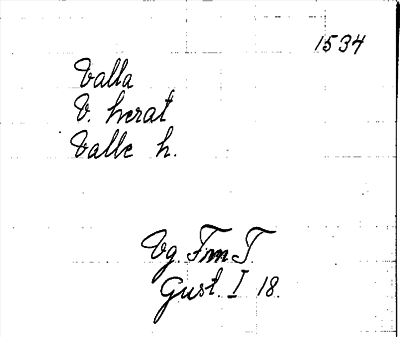 1534
Valla
V. herat
Valle h.
Vg. Fm T.
Gust. I 18.